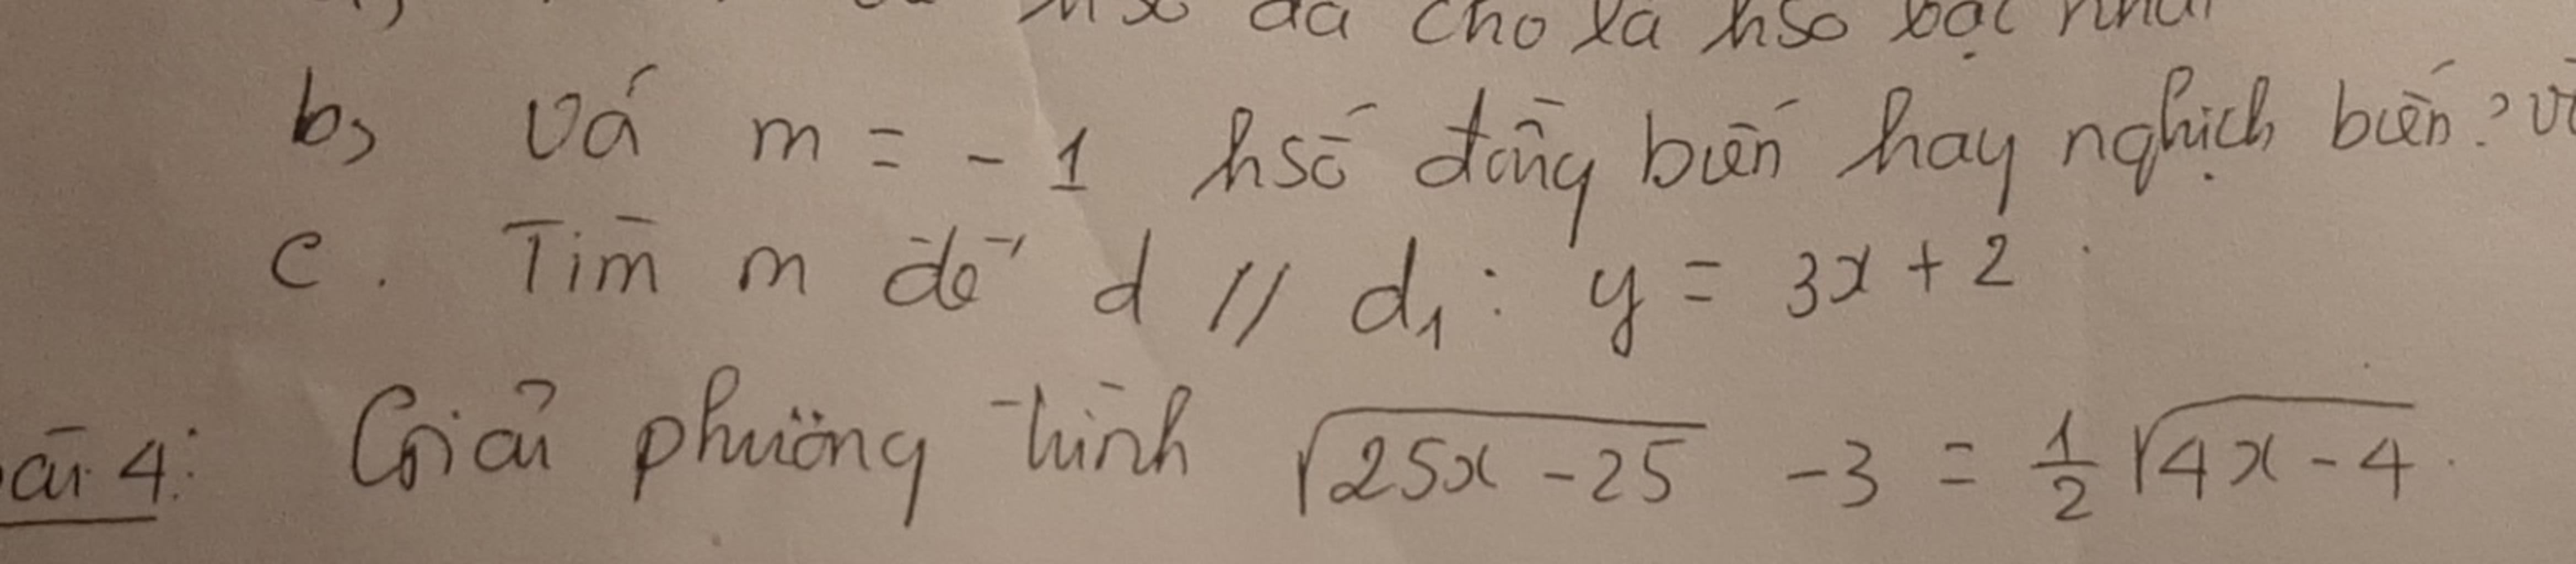 đã cho là hso bậc nhất
b, Vá m = - 1 hsố đồng biến hay nghịch biến?
c. Tìm m để d // d₁: y = 3x + 2.
ài 4: Giải phương trình √(25x - 25) - 3 = 1/2 √(4x - 4).